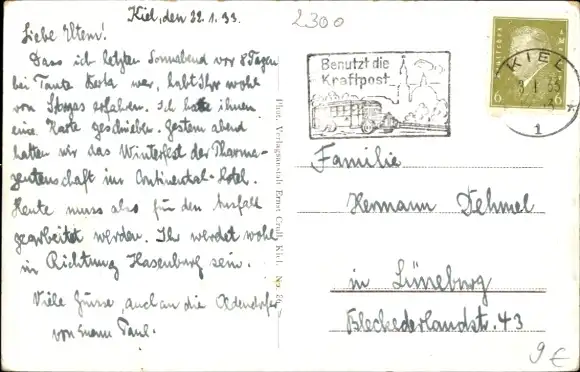 Kiel, den 22.1.33.
2300
Liebe Eltern!
Dass ich letzten Sonnabend vor 8 Tagen
bei Tante war, habt Ihr wohl
von erfahren. Ich hatte ihnen
eine Karte geschrieben. Gestern abend
hatten wir das Winterfest der Pharma-
zeutenschaft im Continental-Hotel.
Heute muss also für den Ausfall
gearbeitet werden. Ihr werdet wohl
in Richtung Hasenburg sein.
Viele Grüsse, auch an die Odendorfer
von Eurem Paul.
Phot. Verlagsanstalt Ernst Kiel. No.
Benutzt die
Kraftpost
KIEL
1
6 6
Familie
Hermann Dehmel
in Lüneburg
Bleckederlandstr. 43
9€